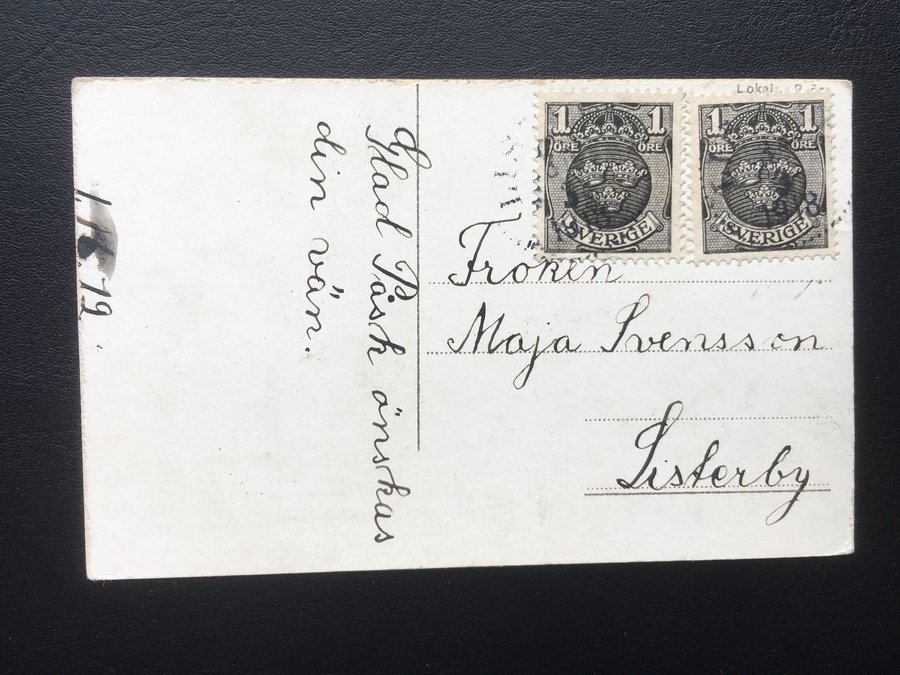 Glad Påsk önskas
din vän.
1/5.12.
Lokal
1 1
ÖRE ÖRE
SVERIGE
1 1
ÖRE ÖRE
SVERIGE
Fröken
Maja Svensson
Listerby